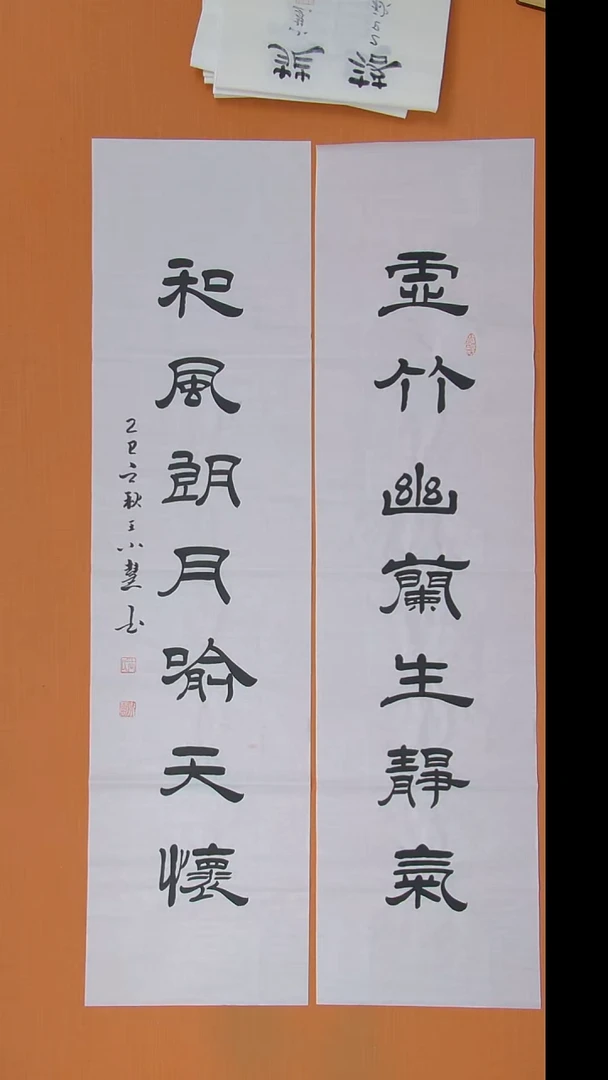 虛竹幽蘭生靜氣
和風朗月喻天懷
乙巳之秋王小慧书